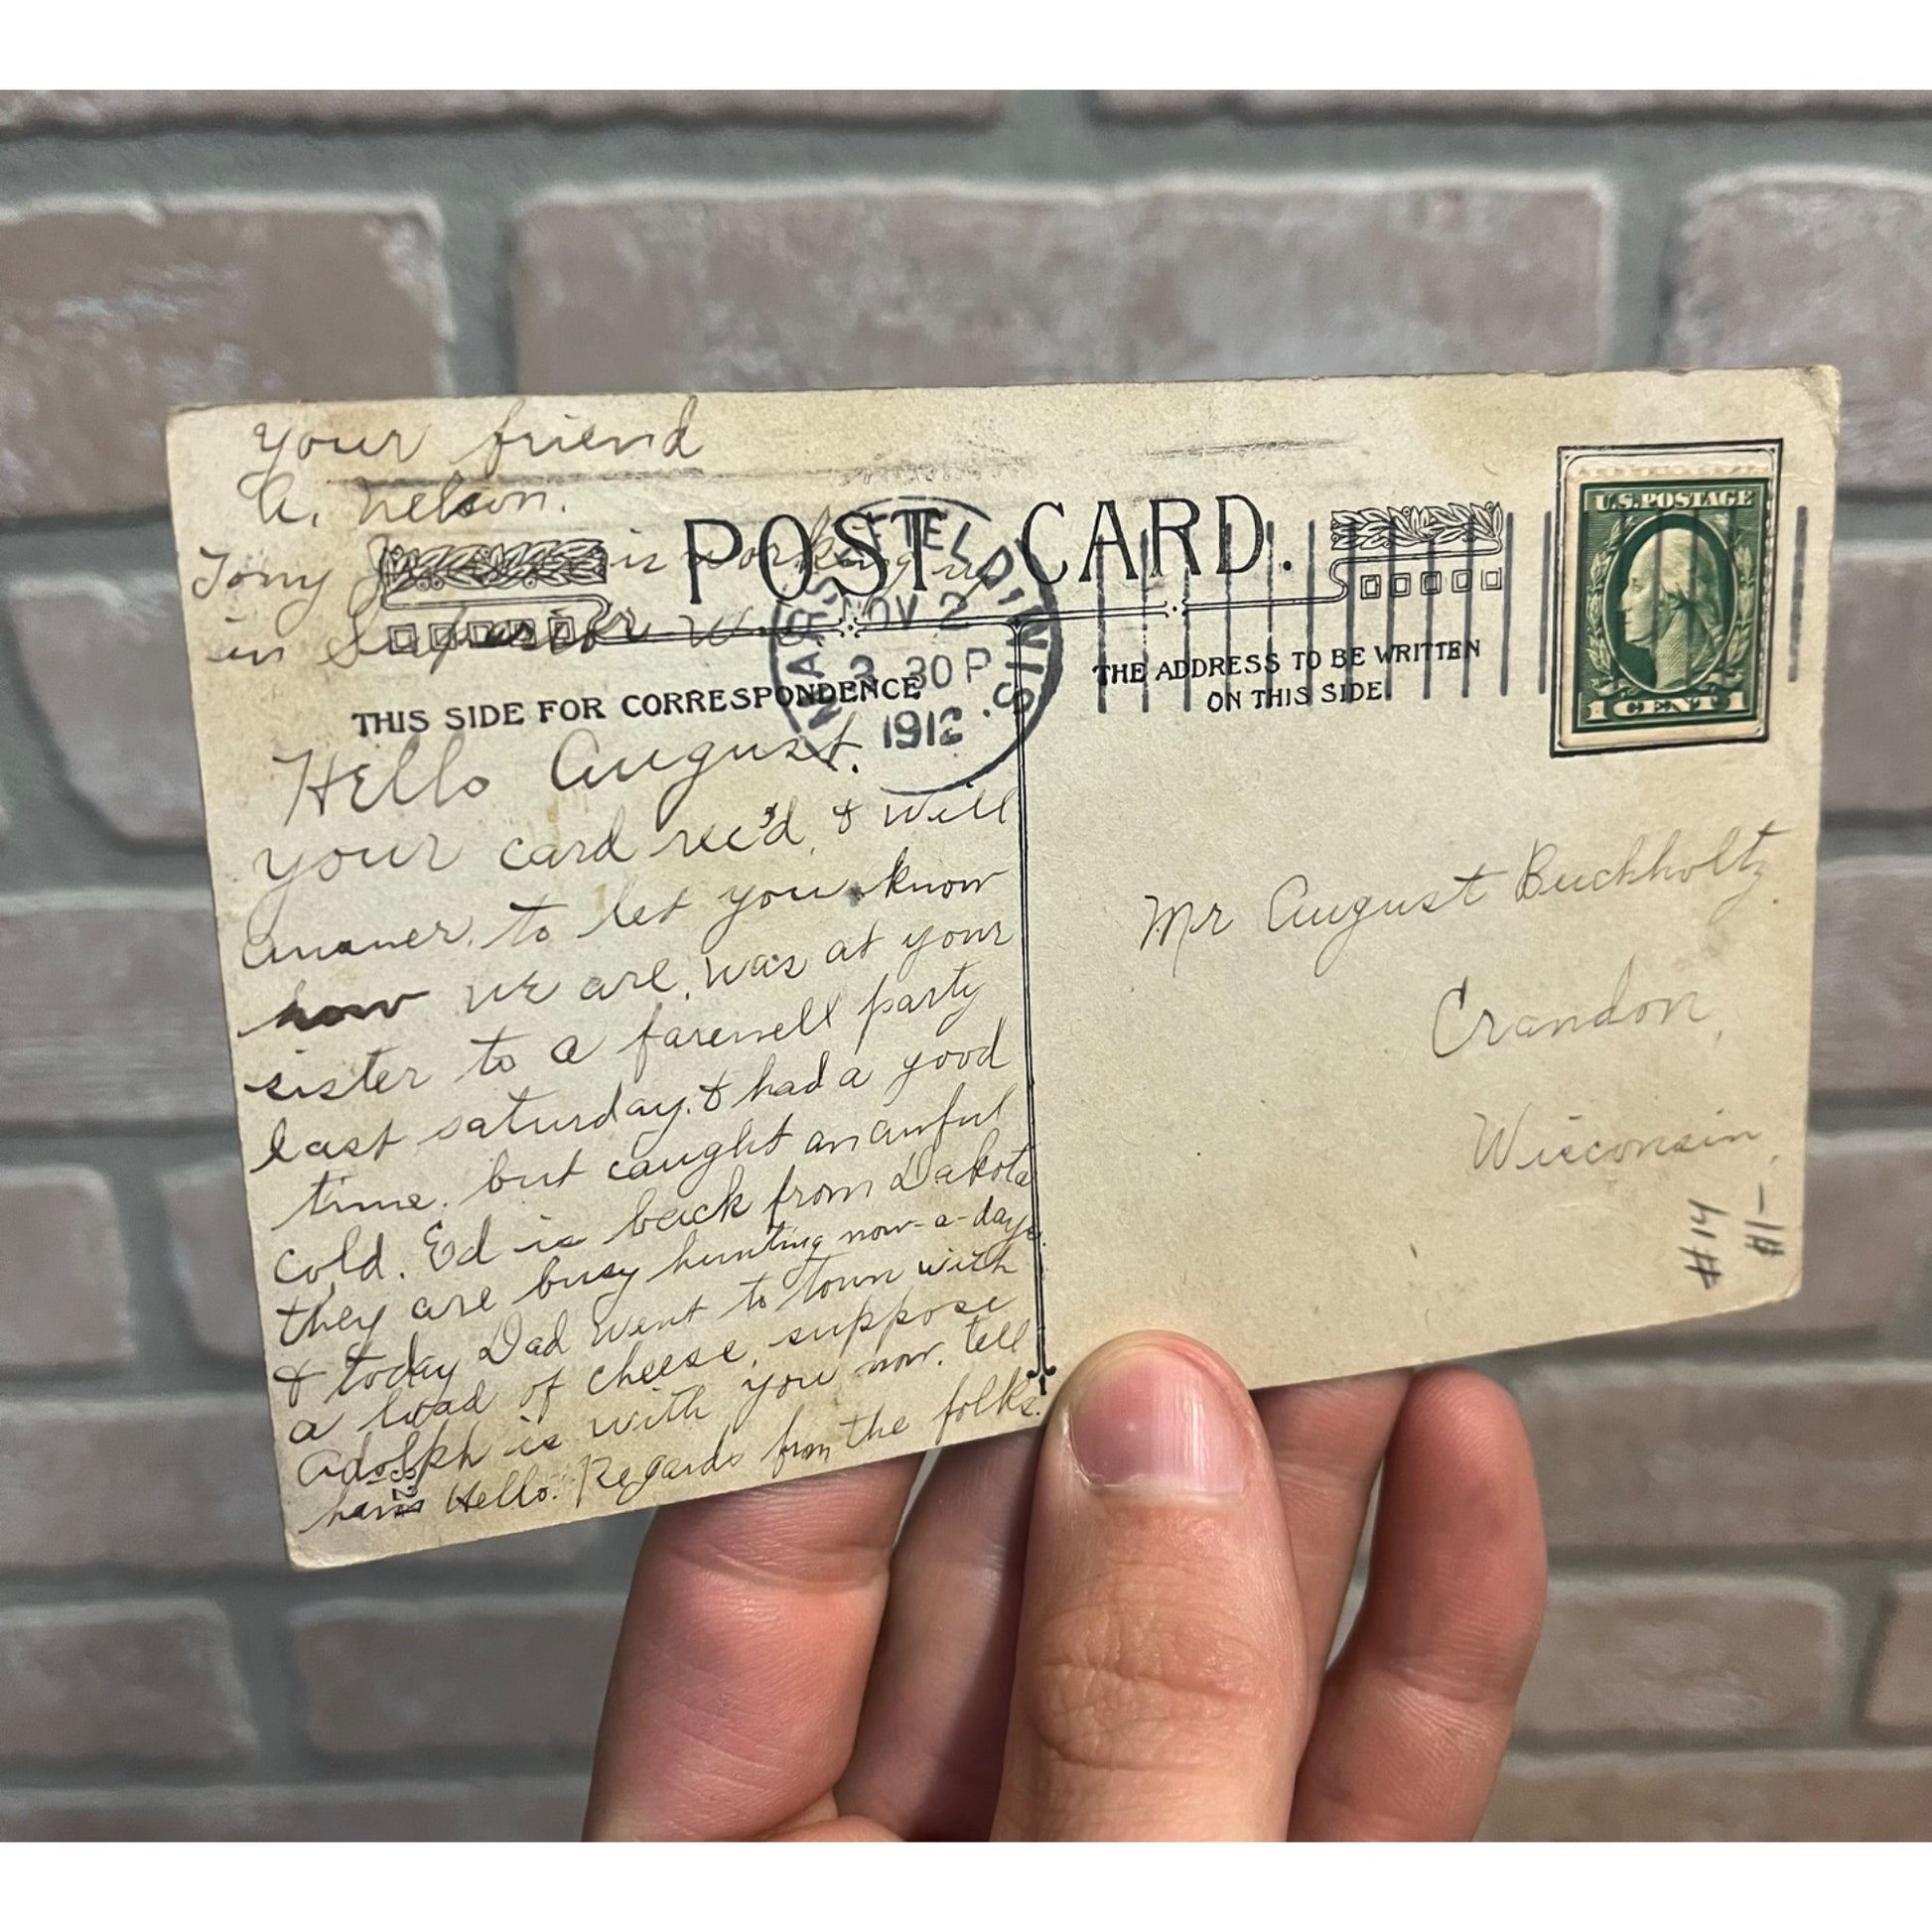 your friend
A. Nelson.
Tony is working up
in Superior Wis
POST CARD.
MARSHFIELD, WIS.
NOV 2
3 30 P
1912
U.S. POSTAGE
1 CENT 1
THIS SIDE FOR CORRESPONDENCE
THE ADDRESS TO BE WRITTEN
ON THIS SIDE.
Hello August.
your card rec'd, & will
answer, to let you know
how we are, was at your
sister to a farewell party
last saturday. & had a good
time. but caught an awful
cold. Ed is back from Dakota
they are busy hunting now-a-days.
& today Dad went to town with
a load of cheese, suppose
Adolph is with you now. tell
him Hello. Regards from the folks.
Mr August Buchholtz.
Crandon,
Wisconsin,
#14
$1-